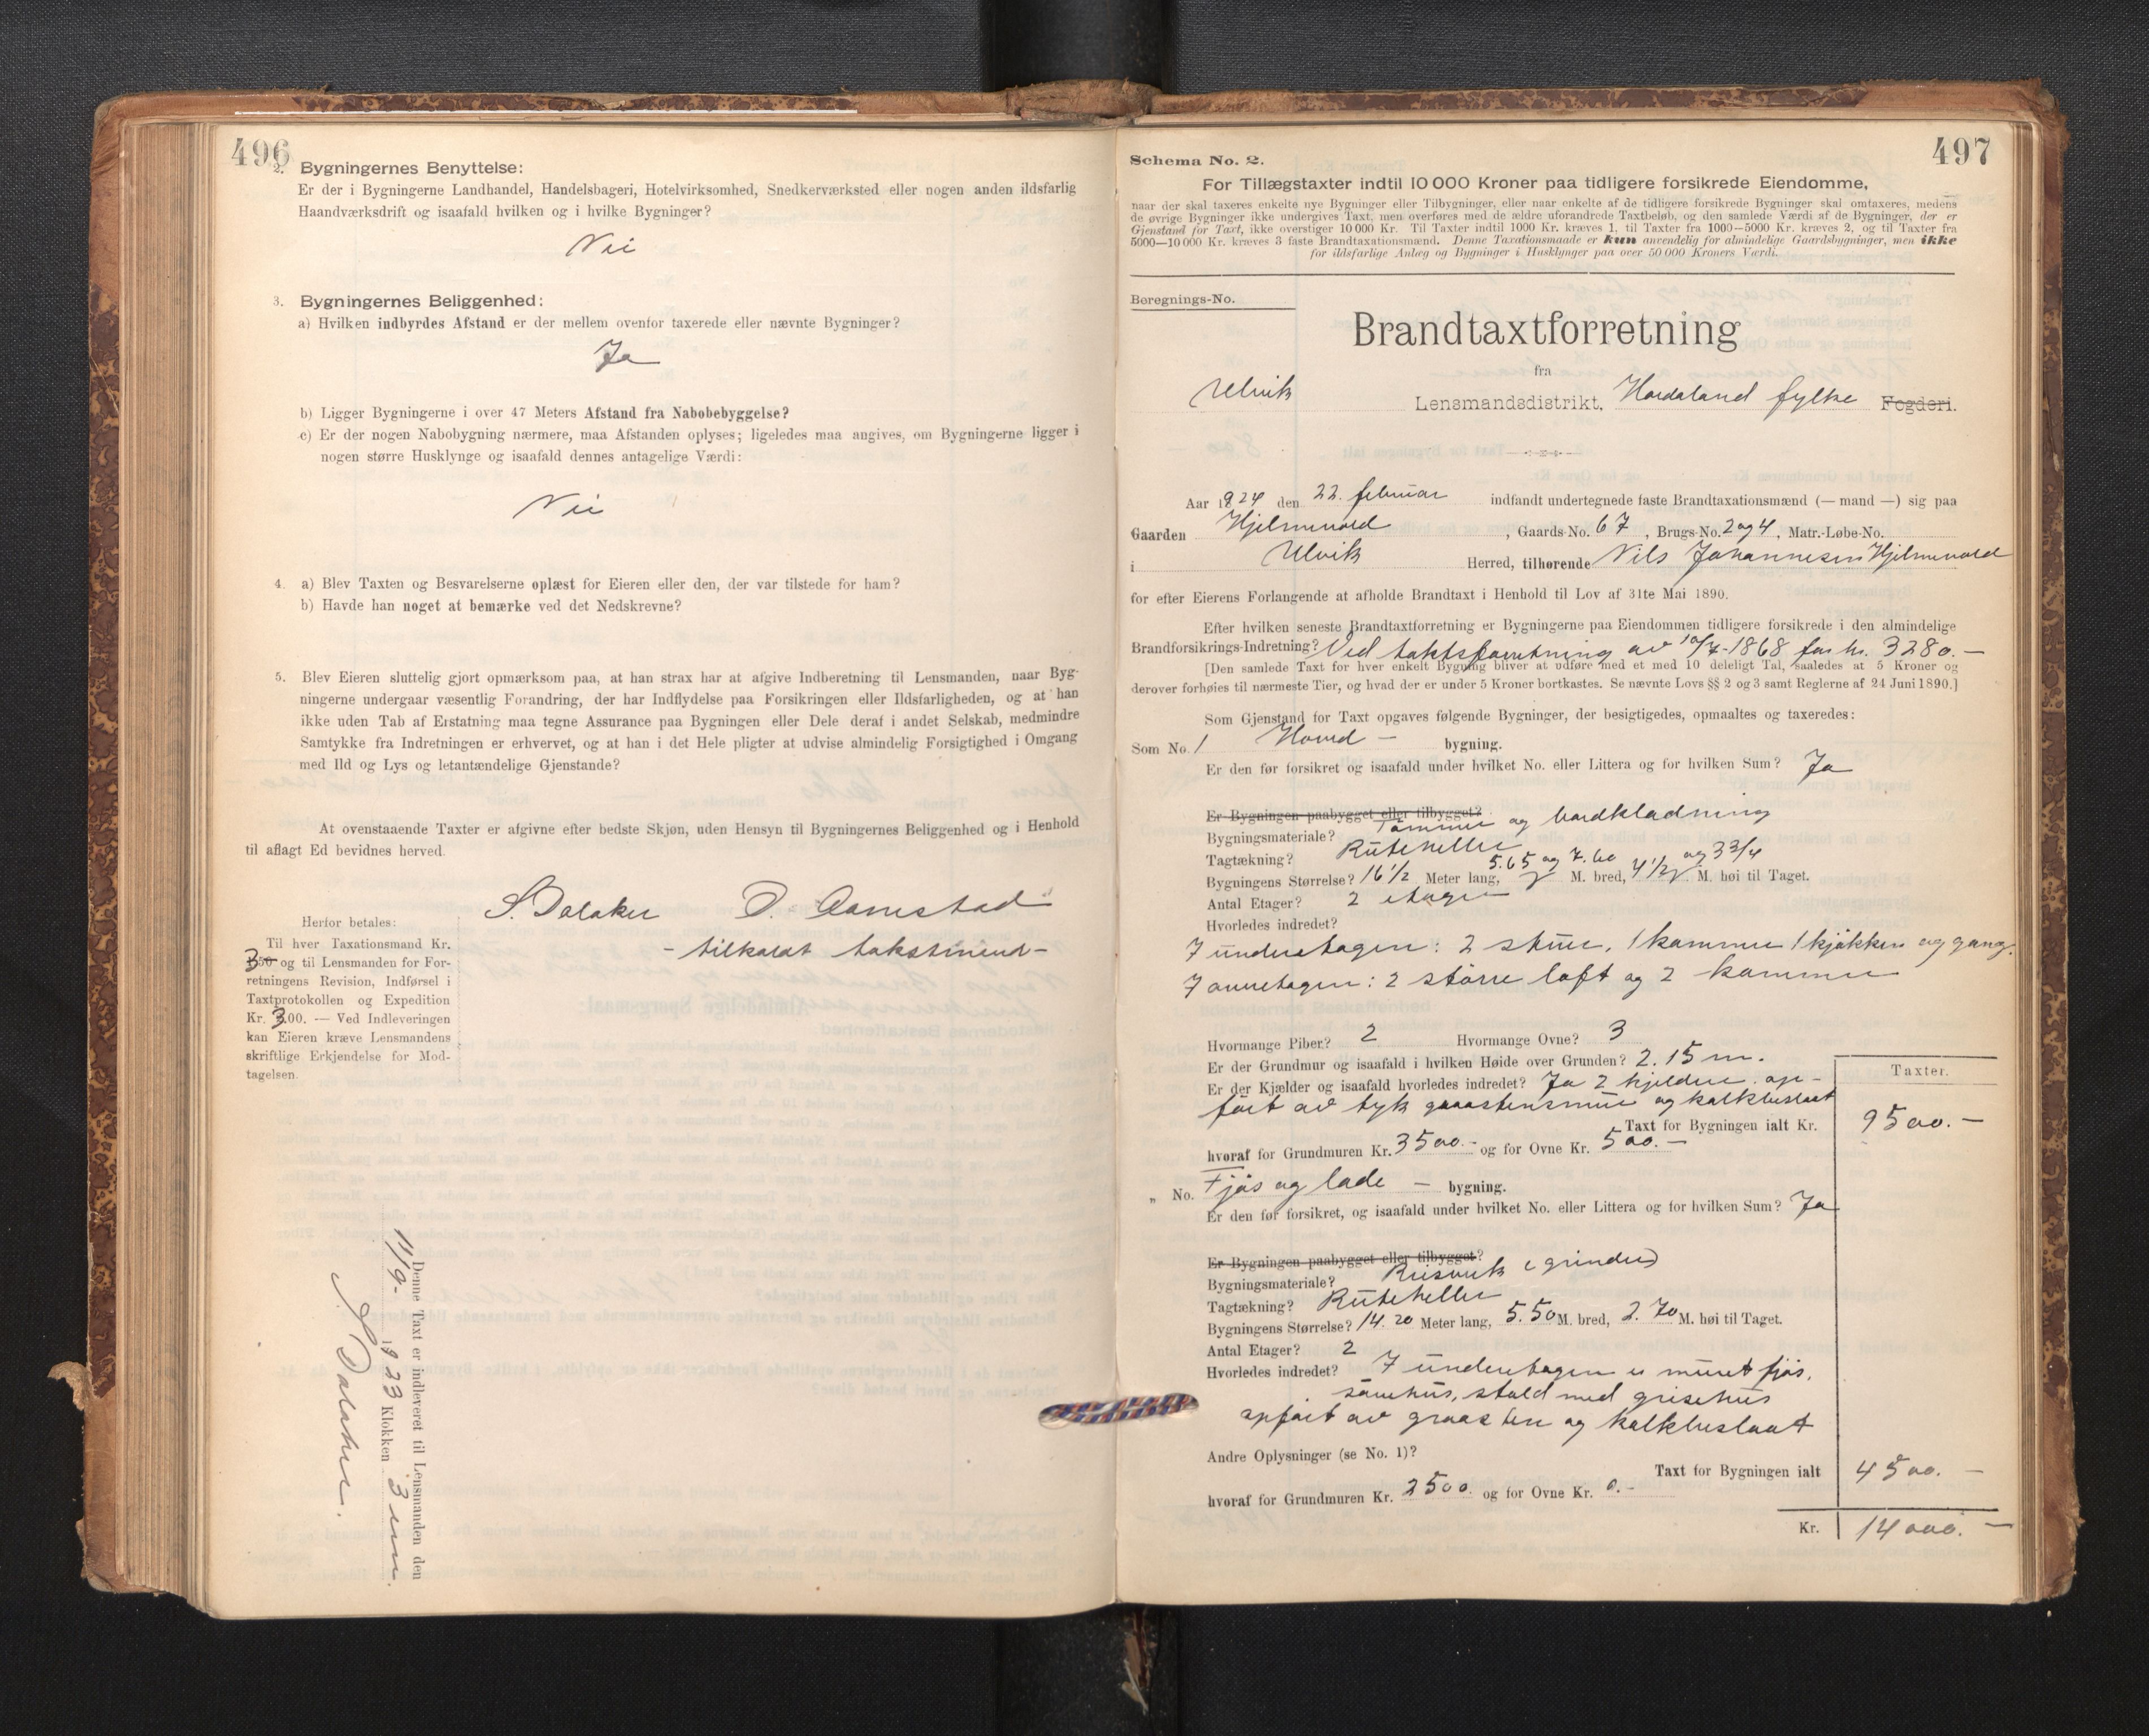 496
2. Bygningernes Benyttelse:
Er der i Bygningerne Landhandel, Handelsbageri, Hotelvirksomhed, Snedkerværksted eller nogen anden ildsfarlig
Haandværksdrift og isaafald hvilken og i hvilke Bygninger?
Nei
3. Bygningernes Beliggenhed:
a) Hvilken indbyrdes Afstand er der mellem ovenfor taxerede eller nævnte Bygninger?
Ja
b) Ligger Bygningerne i over 47 Meters Afstand fra Nabobebyggelse?
c) Er der nogen Nabobygning nærmere, maa Afstanden oplyses; ligeledes maa angives, om Bygningerne ligger i
nogen større Husklynge og isaafald dennes antagelige Værdi:
Nei
4. a) Blev Taxten og Besvarelserne oplæst for Eieren eller den, der var tilstede for ham?
b) Havde han noget at bemærke ved det Nedskrevne?
5. Blev Eieren sluttelig gjort opmærksom paa, at han strax har at afgive Indberetning til Lensmanden, naar Byg-
ningerne undergaar væsentlig Forandring, der har Indflydelse paa Forsikringen eller Ildsfarligheden, og at han
ikke uden Tab af Erstatning maa tegne Assurance paa Bygningen eller Dele deraf i andet Selskab, medmindre
Samtykke fra Indretningen er erhvervet, og at han i det Hele pligter at udvise almindelig Forsigtighed i Omgang
med Ild og Lys og letantændelige Gjenstande?
At ovenstaaende Taxter er afgivne efter bedste Skjøn, uden Hensyn til Bygningernes Beliggenhed og i Henhold
til aflagt Ed bevidnes herved.
S. Dalaker O. Aamestad
- tilkaldt takstmend -
Herfor betales:
Til hver Taxationsmand Kr.
3 og til Lensmanden for For-
retningens Revision, Indførsel i
Taxtprotokollen og Expedition
Kr. 3.00. — Ved Indleveringen
kan Eieren kræve Lensmandens
skriftlige Erkjendelse for Mod-
tagelsen.
Denne Taxt er indleveret til Lensmanden den
11/9- 1923 Klokken 3 em.
S Dalaker.
497
Schema No. 2.
For Tillægstaxter indtil 10 000 Kroner paa tidligere forsikrede Eiendomme,
naar der skal taxeres enkelte nye Bygninger eller Tilbygninger, eller naar enkelte af de tidligere forsikrede Bygninger skal omtaxeres, medens
de øvrige Bygninger ikke undergives Taxt, men overføres med de ældre uforandrede Taxtbeløb, og den samlede Værdi af de Bygninger, der er
Gjenstand for Taxt, ikke overstiger 10 000 Kr. Til Taxter indtil 1000 Kr. kræves 1, til Taxter fra 1000—5000 Kr. kræves 2, og til Taxter fra
5000—10 000 Kr. kræves 3 faste Brandtaxationsmænd. Denne Taxationsmaade er kun anvendelig for almindelige Gaardsbygninger, men ikke
for ildsfarlige Anlæg og Bygninger i Husklynger paa over 50 000 Kroners Værdi.
Beregnings-No.
Brandtaxtforretning
fra
Ulvik Lensmandsdistrikt, Hordaland fylke Fogderi.
Aar 1924 den 22. februar indfandt undertegnede faste Brandtaxationsmænd (— mand —) sig paa
Gaarden Hjelmevold, Gaards-No. 67, Brugs-No. 2 og 4, Matr.-Løbe-No.
i Ulvik Herred, tilhørende Nils Johannesen Hjelmevold
for efter Eierens Forlangende at afholde Brandtaxt i Henhold til Lov af 31te Mai 1890.
Efter hvilken seneste Brandtaxtforretning er Bygningerne paa Eiendommen tidligere forsikrede i den almindelige
Brandforsikrings-Indretning? Ved taktsforretning av 10/7-1868 for kr. 3280.—
[Den samlede Taxt for hver enkelt Bygning bliver at udføre med et med 10 deleligt Tal, saaledes at 5 Kroner og
derover forhøies til nærmeste Tier, og hvad der er under 5 Kroner bortkastes. Se nævnte Lovs §§ 2 og 3 samt Reglerne af 24 Juni 1890.]
Som Gjenstand for Taxt opgaves følgende Bygninger, der besigtigedes, opmaaltes og taxeredes:
Som No. 1 Hoved — bygning.
Er den før forsikret og isaafald under hvilket No. eller Littera og for hvilken Sum? Ja
Er Bygningen paabygget eller tilbygget?
Bygningsmateriale? Tømmer og bordkledning
Tagtækning? Ruteheller
Bygningens Størrelse? 16 1/2 Meter lang, 5.65 og 7.60 M. bred, 4 1/2 og 3 3/4 M. høi til Taget.
Antal Etager? 2 etager
Hvorledes indredet?
I underetagen: 2 stuer, 1 kammer 1 kjøkken og gang.
I annetagen: 2 større loft og 2 kammer
Hvormange Piber? 2 Hvormange Ovne? 3
Er der Grundmur og isaafald i hvilken Høide over Grunden? 2.15 m.
Er der Kjælder og isaafald hvorledes indredet? Ja 2 kjeldere. op-
ført av tyk graastensmur og kalkbeslaat
Taxter.
Taxt for Bygningen ialt Kr. 9500.—
hvoraf for Grundmuren Kr. 3500.- og for Ovne Kr. 500.—
„ No. Fjøs og lade — bygning.
Er den før forsikret, og isaafald under hvilket No. eller Littera og for hvilken Sum? Ja
Er Bygningen paabygget eller tilbygget?
Bygningsmateriale? Reisverk (grinder)
Tagtækning? Ruteheller
Bygningens Størrelse? 14.20 Meter lang, 5.50 M. bred, 2.70 M. høi til Taget.
Antal Etager? 2
Hvorledes indredet? I underetagen er muret fjøs,
sauehus, stald med grisehus
opført av graasten og kalkbeslaat
Andre Oplysninger (se No. 1)?
Taxt for Bygningen ialt 4500.—
hvoraf for Grundmuren Kr. 2500. og for Ovne Kr. 0.-
Kr. 14000.—